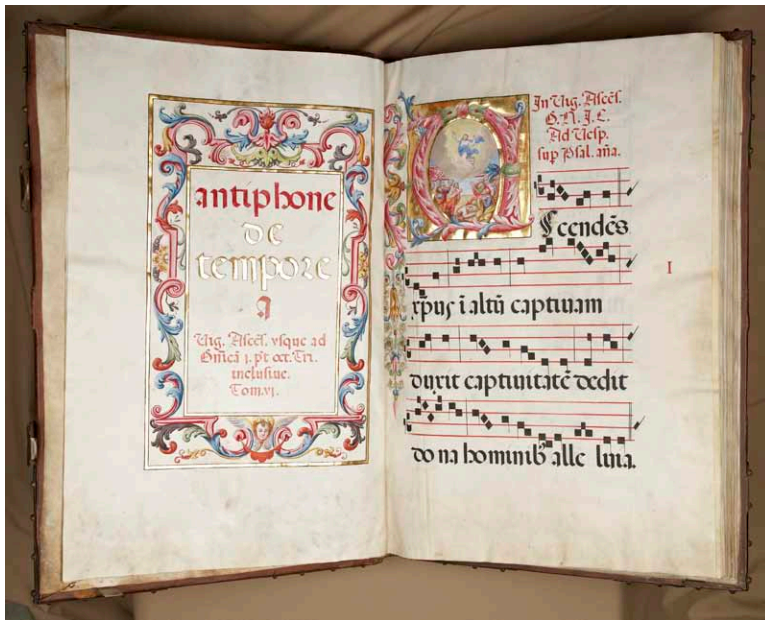 antiphone
de
tempore
a
Vig. Ascēs. vsque ad
Dn̄icā j. p̄t oct. Tri.
inclusiue.
Tom. vj.
In Vig. Ascēs.
D. N. J. C.
Ad Vesp.
sup Psal. aña.
A Scendēs
xp̄us ī altū captiuam
duxit captiuitatē dedit
do na hominib alle luia.
I